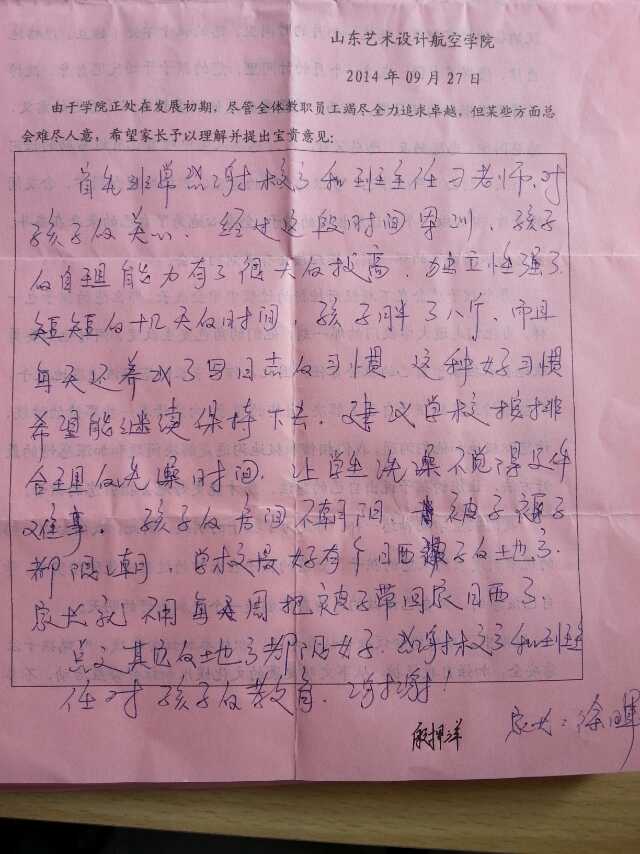 山东艺术设计航空学院
2014年09月27日
由于学院正处在发展初期，尽管全体教职员工竭尽全力追求卓越，但某些方面总
会难尽人意，希望家长予以理解并提出宝贵意见：
首先非常感谢校方和班主任 老师，对
孩子的关心。经过这段时间军训，孩子
的自理能力有了很大的提高，独立性强了
短短的十几天的时间，孩子胖了八斤，而且
每天还养成了写日志的习惯，这种好习惯
希望能继续保持下去。建议学校按排
合理的洗澡时间，让学生洗澡不觉得是件
难事。孩子的房间不朝阳，被子褥子
都很潮，学校最好有个晒被子的地方。
家长就不用每周把被子带回家晒了。
总之其它的地方都很好 感谢校方和班主
任对孩子的教育，谢谢！
家长：徐